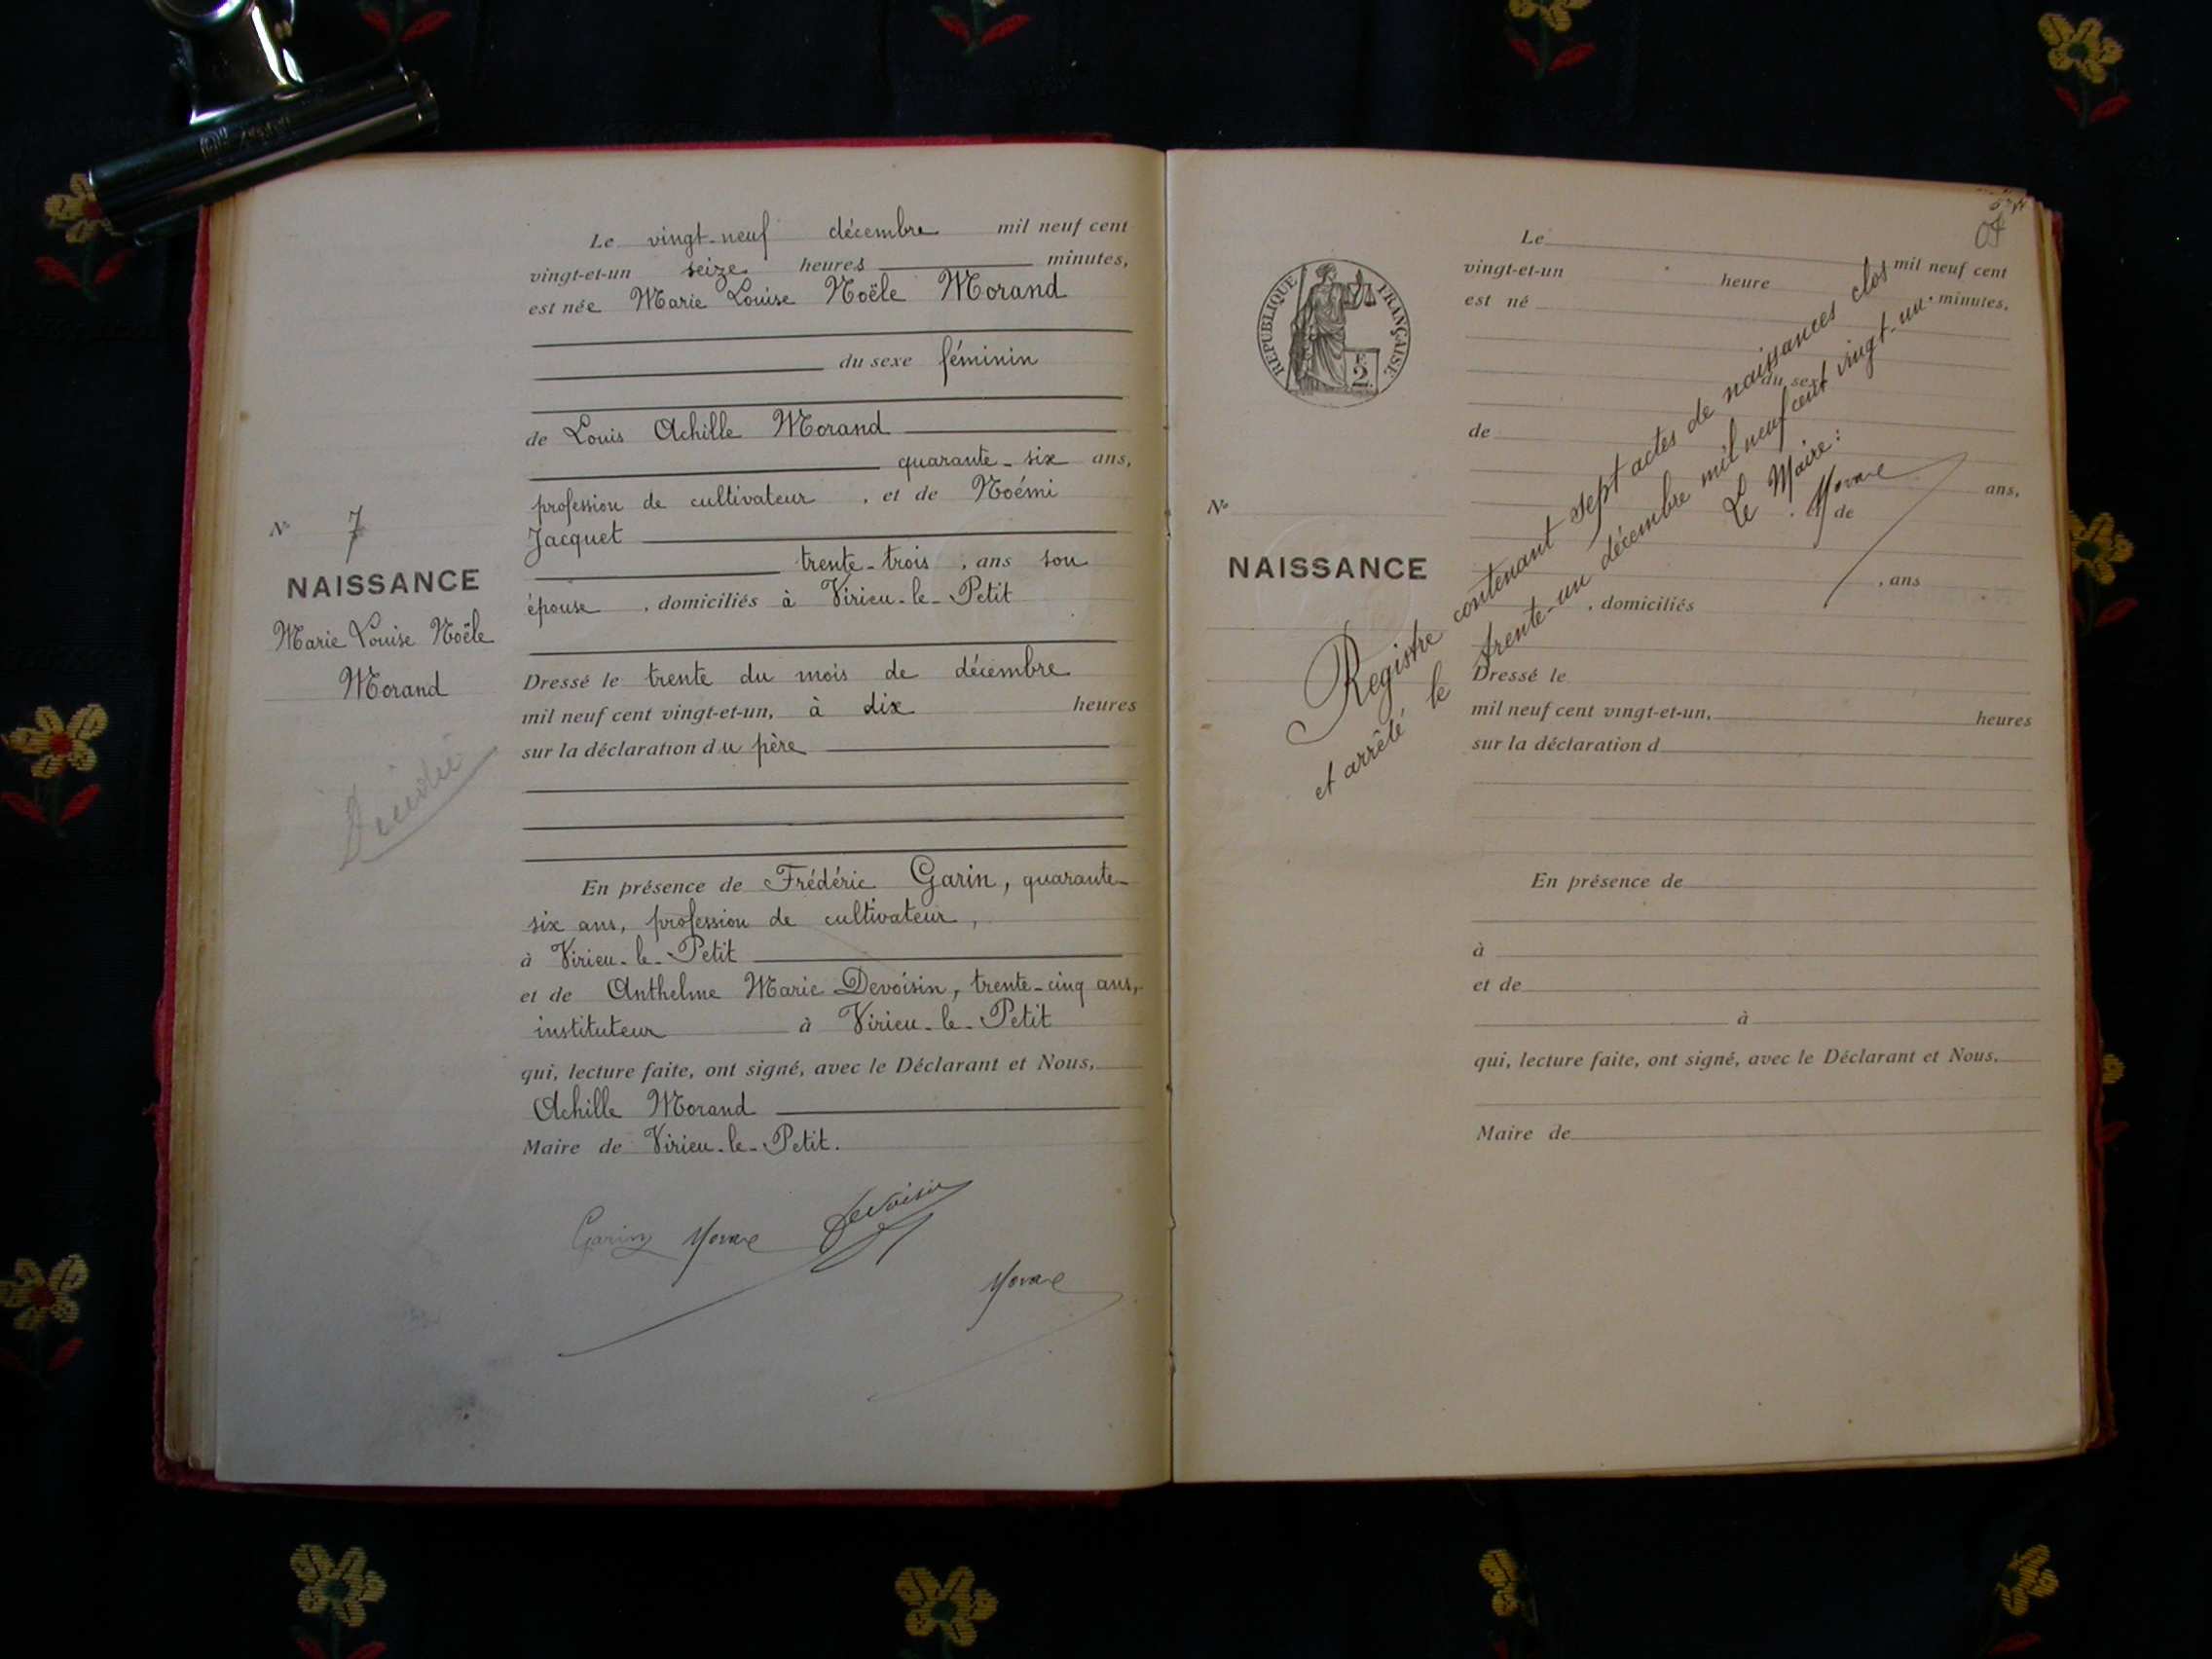 Le vingt-neuf décembre mil neuf cent
vingt-et-un seize heures minutes,
est née Marie Louise Noële Morand
du sexe féminin
de Louis Achille Morand
quarante-six ans,
profession de cultivateur, et de Noémi
Jacquet
trente-trois, ans son
épouse, domiciliés à Virieu-le-Petit
N° 7
NAISSANCE
Marie Louise Noële
Morand
Dressé le trente du mois de décembre
mil neuf cent vingt-et-un, à dix heures
sur la déclaration du père
En présence de Frédéric Garin, quarante-
six ans, profession de cultivateur,
à Virieu-le-Petit
et de Anthelme Marie Devoisin, trente-cinq ans,
instituteur à Virieu-le-Petit
qui, lecture faite, ont signé, avec le Déclarant et Nous,
Achille Morand
Maire de Virieu-le-Petit.
Garin Morand Devoisin
Morand
REPUBLIQUE FRANÇAISE
2
N°
NAISSANCE
Le mil neuf cent
vingt-et-un heure minutes.
est né
du sexe
de
ans,
et de
, ans
, domiciliés
Dressé le
mil neuf cent vingt-et-un, heures
sur la déclaration d
En présence de
à
et de
à
qui, lecture faite, ont signé, avec le Déclarant et Nous,
Maire de
Registre contenant sept actes de naissances clos
et arrêté le trente-un décembre mil neuf cent vingt-un.
Le Maire:
Morand